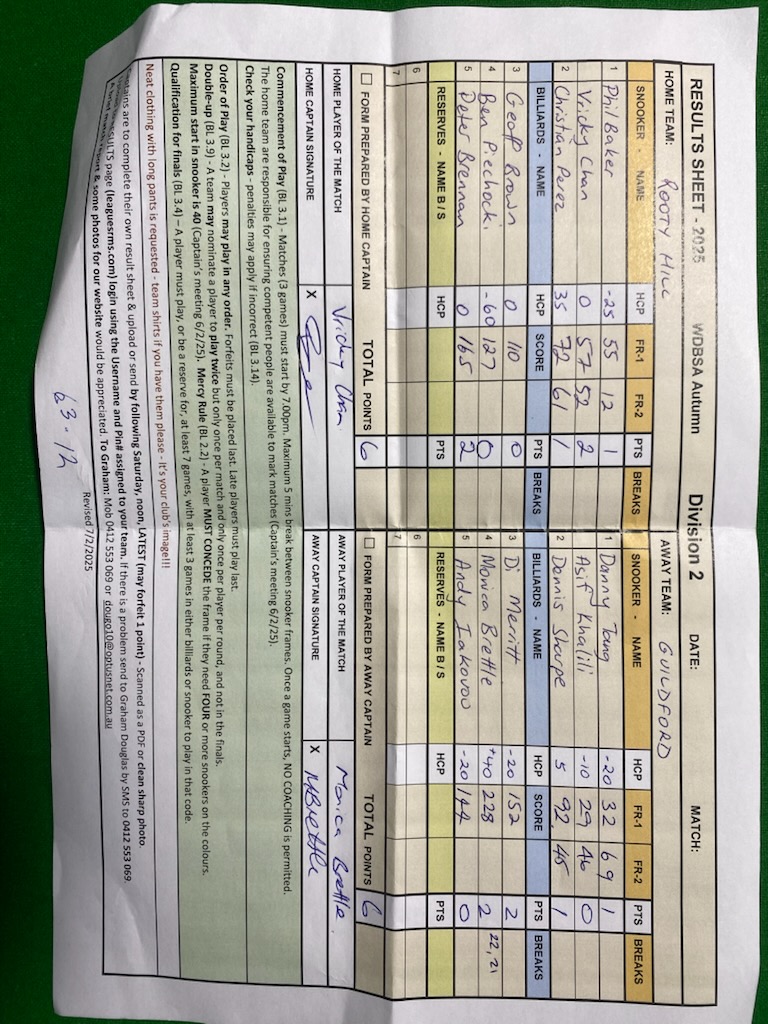 RESULTS SHEET - 2025 WDBSA Autumn Division 2 DATE: MATCH:
HOME TEAM: ROOTY HILL AWAY TEAM: GUILDFORD
SNOOKER - NAME HCP FR-1 FR-2 PTS BREAKS SNOOKER - NAME HCP FR-1 FR-2 PTS BREAKS
1 Phil Baker -25 55 12 1 1 Danny Tang -20 32 69 1
Vricky Chan 0 57 52 2 Asif Khalili -10 29 46 0
2 Christian Perez 35 72 61 1 2 Dennis Sharpe 5 92 45 1
BILLIARDS - NAME HCP SCORE PTS BREAKS BILLIARDS - NAME HCP SCORE PTS BREAKS
3 Geoff Brown 0 110 0 3 Di Merritt -20 152 2
4 Ben Piechocki -60 127 0 4 Monica Brettle +40 228 2 22, 21
5 Peter Brennan 0 165 2 5 Andy Iakovou -20 144 0
RESERVES - NAME B / S HCP PTS RESERVES - NAME B / S HCP PTS
6 6
7 7
FORM PREPARED BY HOME CAPTAIN TOTAL POINTS 6 FORM PREPARED BY AWAY CAPTAIN TOTAL POINTS 6
HOME PLAYER OF THE MATCH Vricky Chan AWAY PLAYER OF THE MATCH Monica Brettle
HOME CAPTAIN SIGNATURE X AWAY CAPTAIN SIGNATURE X MBrettle
Commencement of Play (BL 3.1) - Matches (3 games) must start by 7.00pm. Maximum 5 mins break between snooker frames. Once a game starts, NO COACHING is permitted.
The home team are responsible for ensuring competent people are available to mark matches (Captain's meeting 6/2/25).
Check your handicaps - penalties may apply if incorrect (BL 3.14).
Order of Play (BL 3.2) - Players may play in any order. Forfeits must be placed last. Late players must play last.
Double-up (BL 3.9) - A team may nominate a player to play twice but only once per match and only once per player per round, and not in the finals.
Maximum start in snooker is 40 (Captain's meeting 6/2/25). Mercy Rule (BL 2.2) - A player MUST CONCEDE the frame if they need FOUR or more snookers on the colours.
Qualification for finals (BL 3.4) – A player must play, or be a reserve for, at least 7 games, with at least 3 games in either billiards or snooker to play in that code.
Neat clothing with long pants is requested - team shirts if you have them please - It's your club's image!!!
are to complete their own result sheet & upload or send by following Saturday, noon, LATEST (may forfeit 1 point) - Scanned as a PDF or clean sharp photo.
RESULTS page (leaguesrms.com) login using the Username and Pin# assigned to your team. If there is a problem send to Graham Douglas by SMS to 0412 553 069.
& some photos for our website would be appreciated. To Graham: Mob 0412 553 069 or dougo10@optusnet.com.au
Revised 7/2/2025
63-12